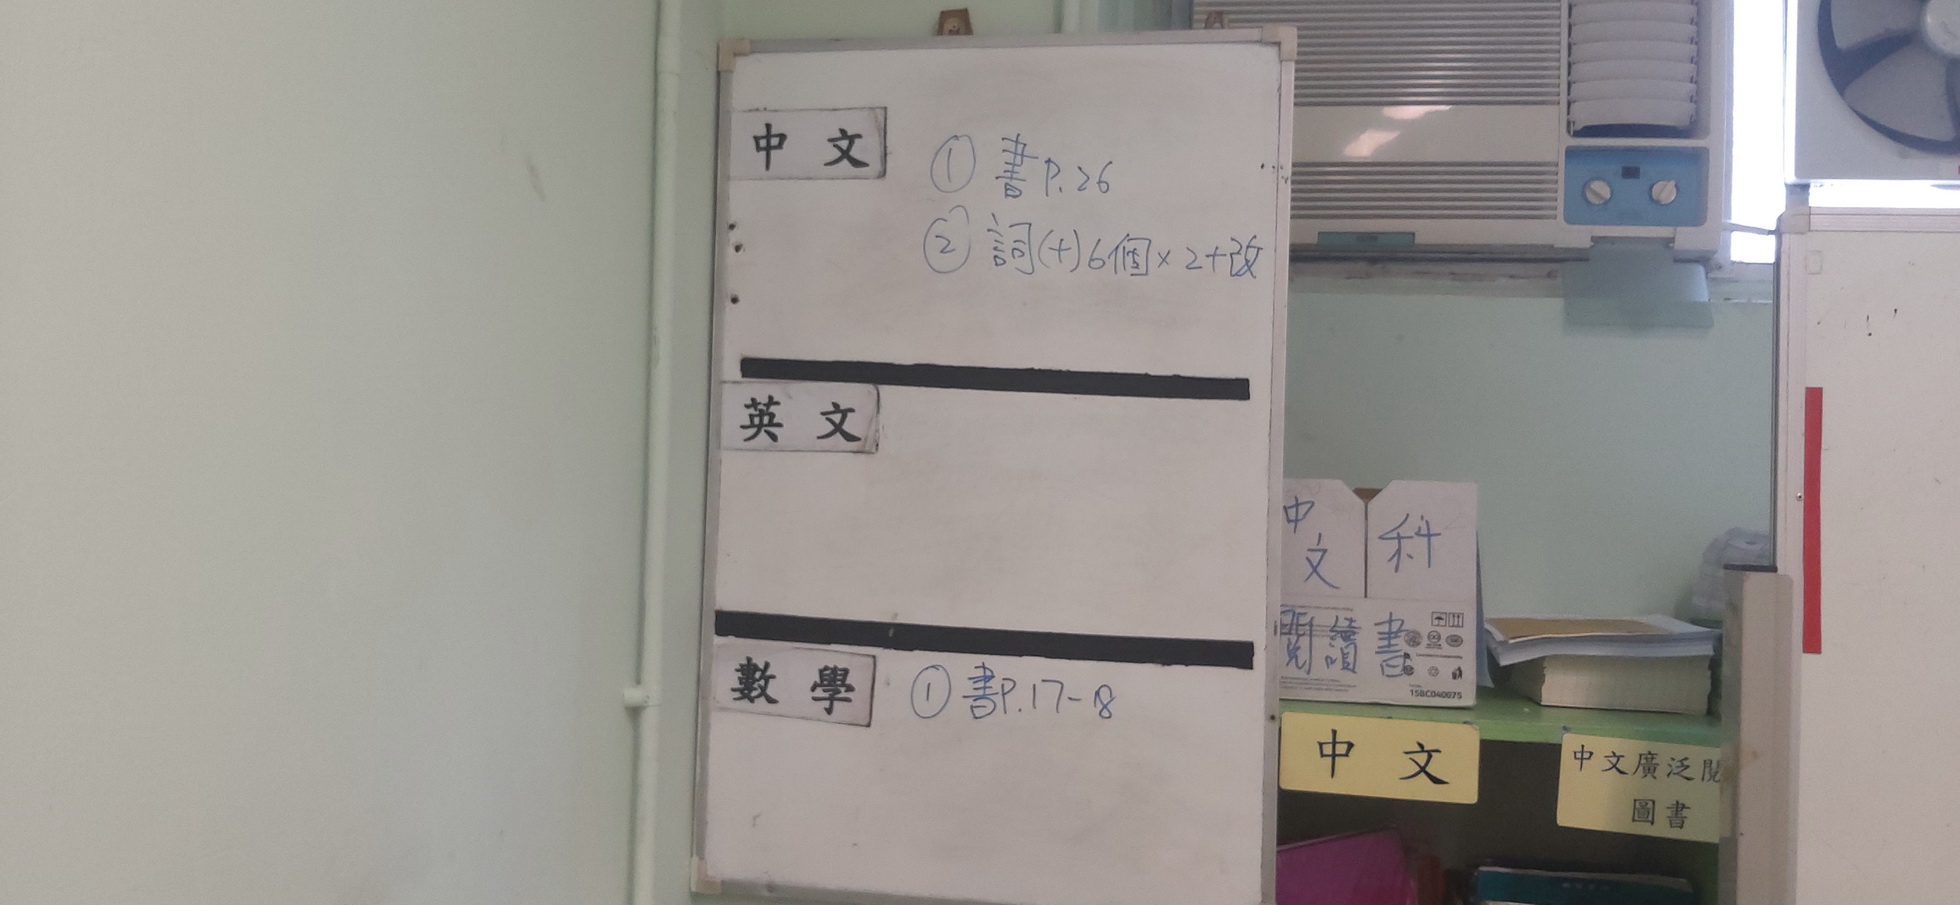 中文
① 書P.26
② 詞(十)6個×2+改
英文
數學
① 書P.17-18
中文
科
閱讀書
158C040075
中文
中文廣泛閱
圖書